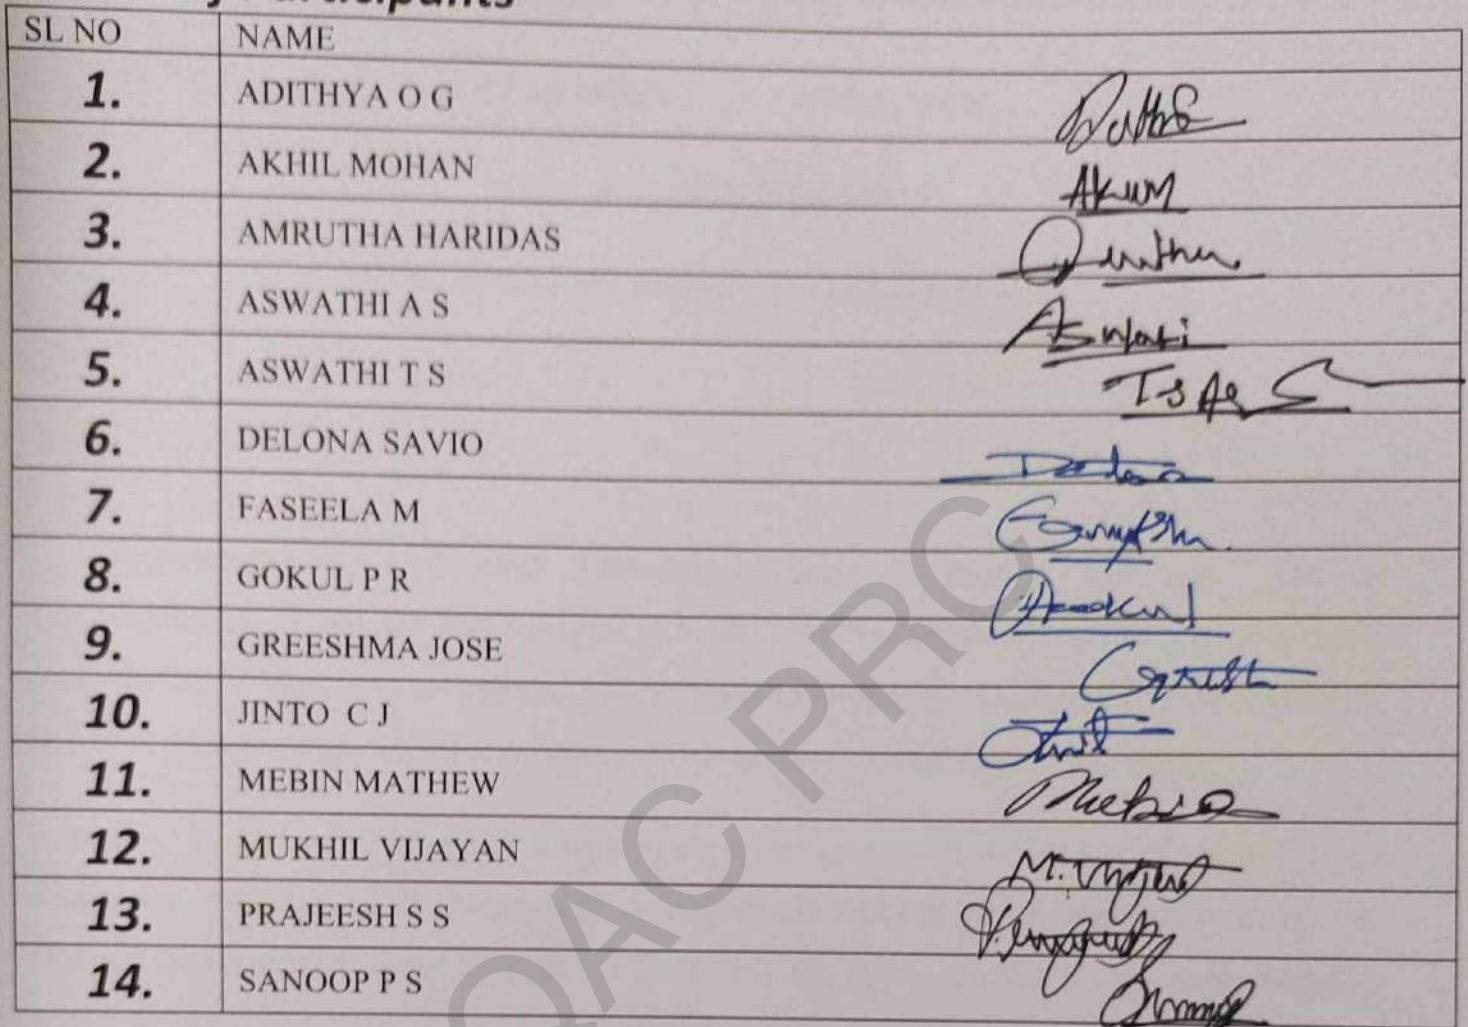 Participants
SL NO NAME
1. ADITHYA O G
2. AKHIL MOHAN
3. AMRUTHA HARIDAS
4. ASWATHI A S Aswathi
5. ASWATHI T S
6. DELONA SAVIO Delona
7. FASEELA M
8. GOKUL P R
9. GREESHMA JOSE
10. JINTO C J
11. MEBIN MATHEW Mebin
12. MUKHIL VIJAYAN
13. PRAJEESH S S
14. SANOOP P S
QAC PRC